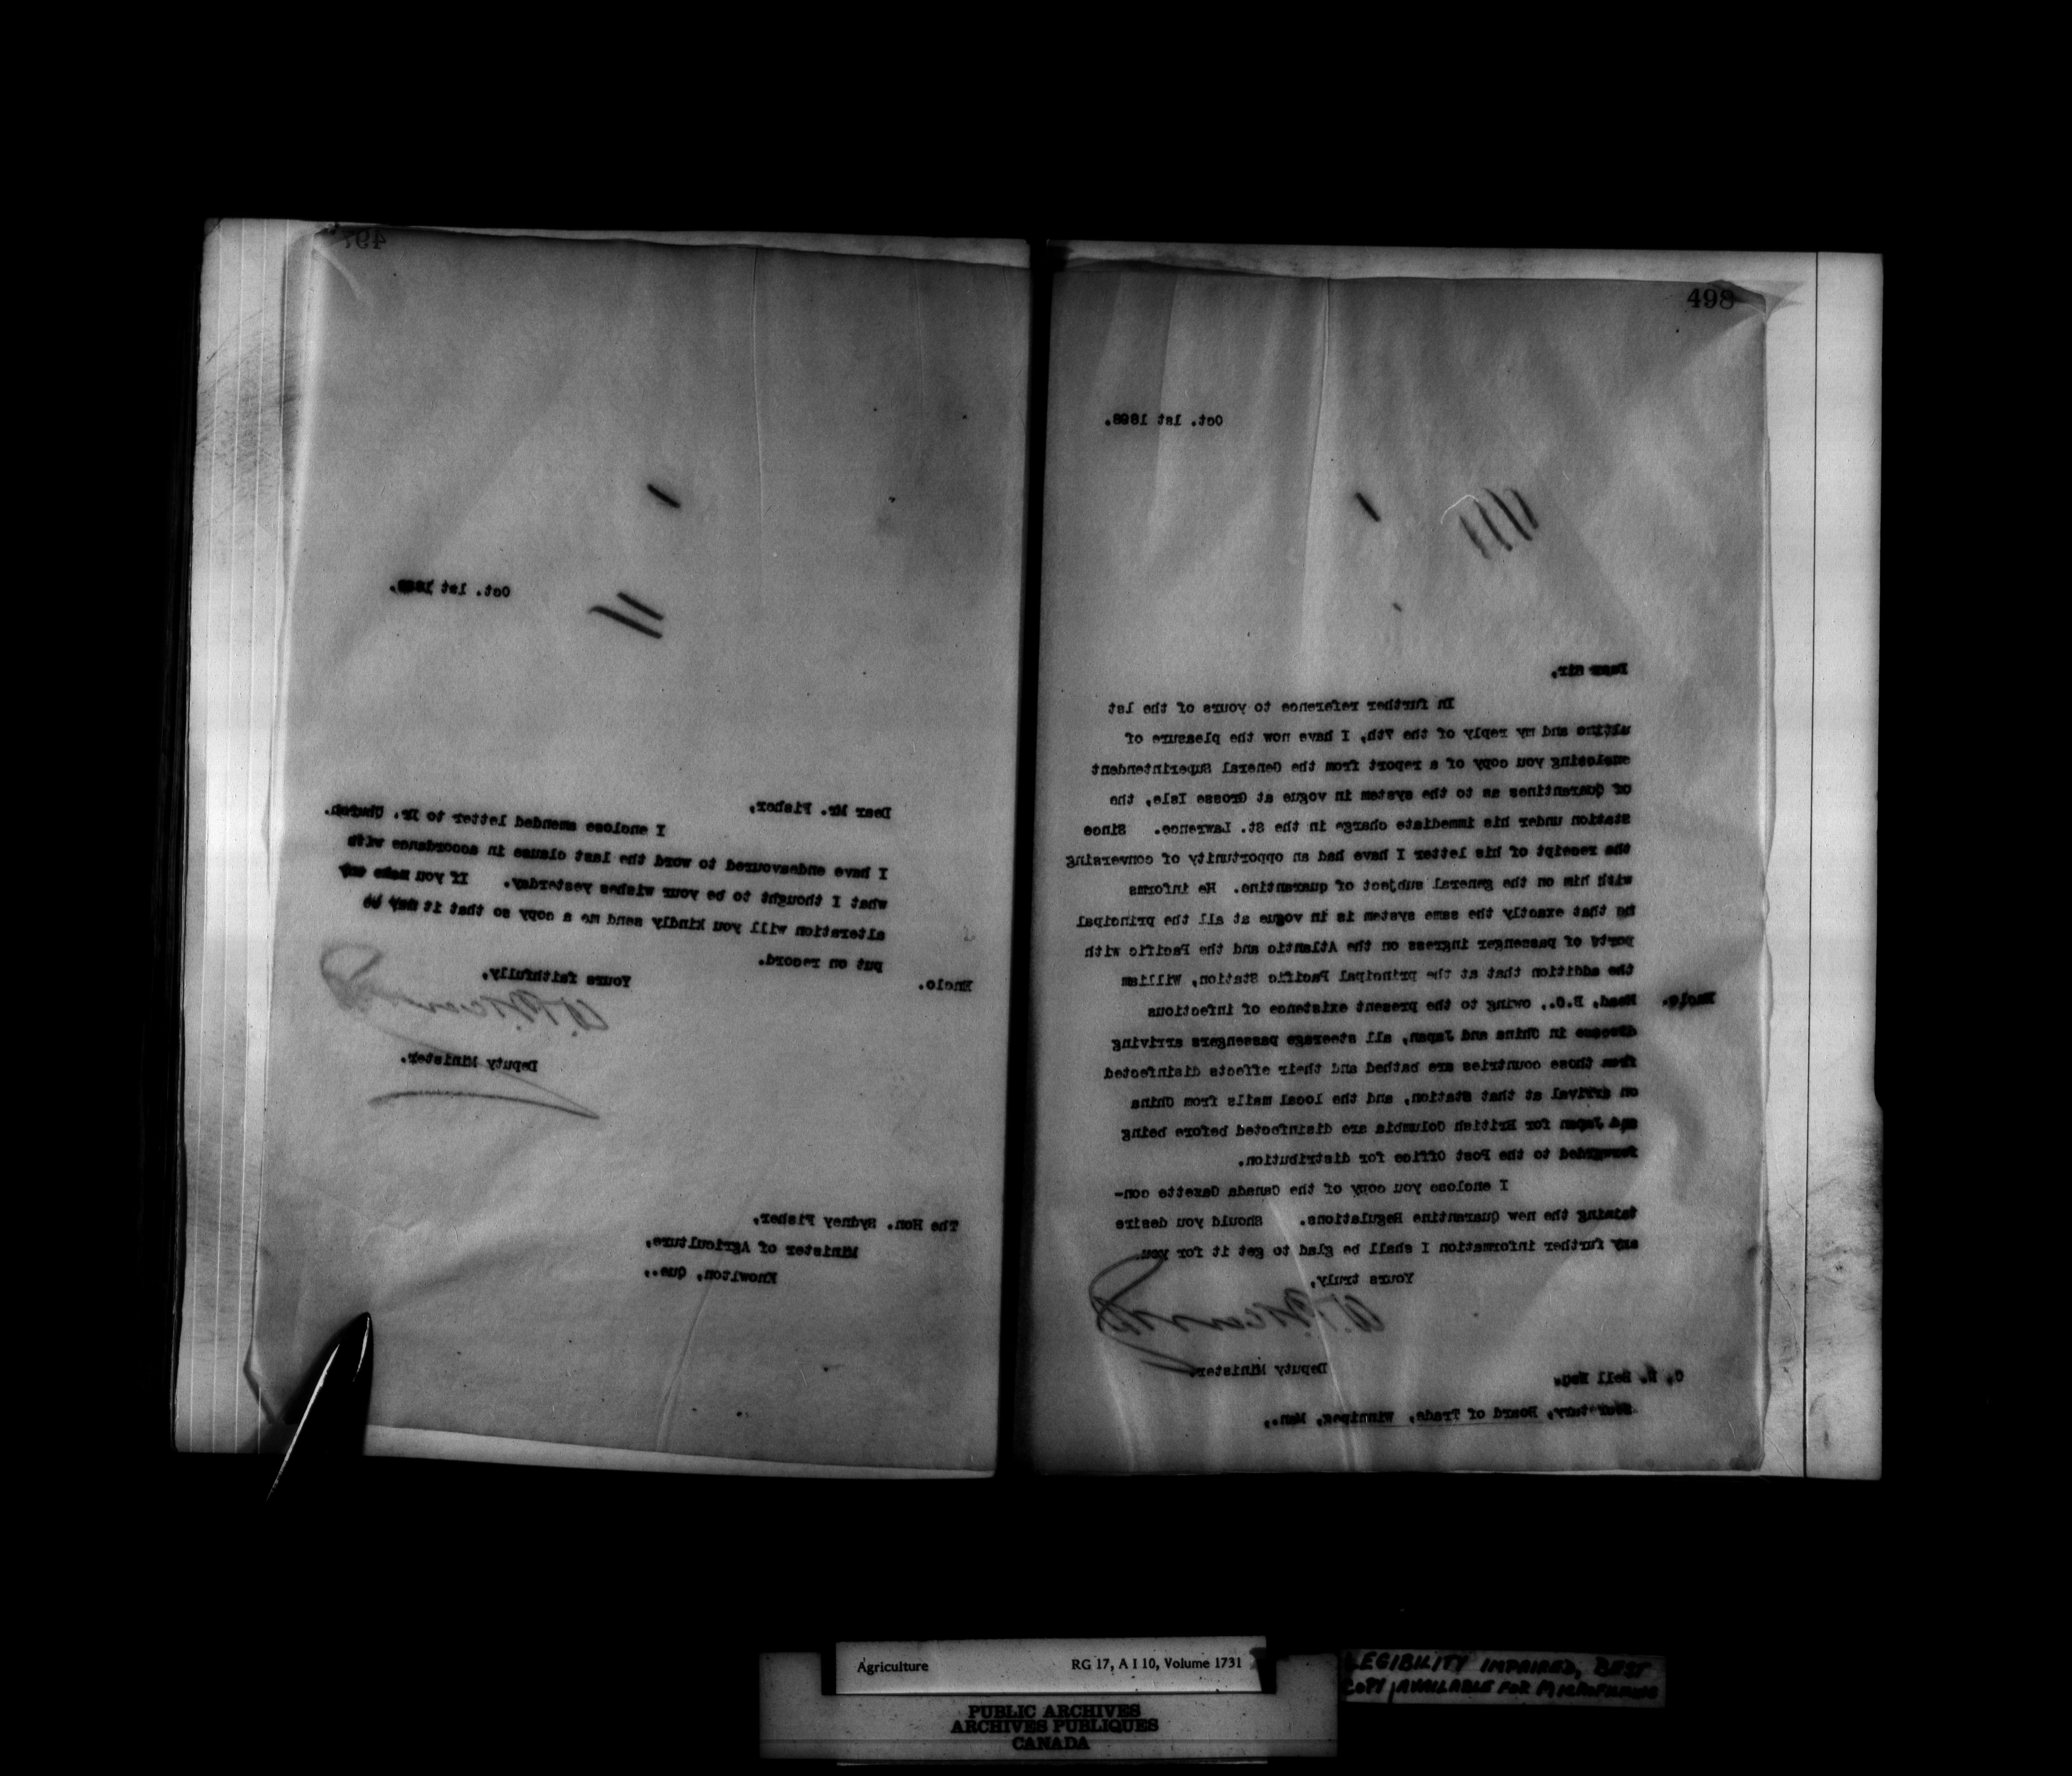 497
Oct. 1st
Dear Mr. Fisher,
I enclose amended letter to Dr. Church.
I have endeavoured to word the last clause in accordance with
what I thought to be your wishes yesterday. If you make any
alteration will you kindly send me a copy so that it may be
put on record.
Enclo.
Yours faithfully,
Deputy Minister.
The Hon. Sydney Fisher,
Minister of Agriculture,
Knowlton, Que.,
498
Oct. 1st 1898.
Dear Sir,
In further reference to yours of the 1st
ultimo and my reply of the 7th, I have now the pleasure of
enclosing you copy of a report from the General Superintendent
of Quarantines as to the system in vogue at Grosse Isle, the
Station under his immediate charge in the St. Lawrence. Since
the receipt of his letter I have had an opportunity of conversing
with him on the general subject of quarantine. He informs
me that exactly the same system is in vogue at all the principal
ports of passenger ingress on the Atlantic and the Pacific with
the addition that at the principal Pacific Station, William
Head, B.C., owing to the present existence of infectious
Enclo.
disease in China and Japan, all steerage passengers arriving
from those countries are bathed and their effects disinfected
on arrival at that Station, and the local mails from China
and Japan for British Columbia are disinfected before being
forwarded to the Post Office for distribution.
I enclose you copy of the Canada Gazette con-
taining the new Quarantine Regulations. Should you desire
any further information I shall be glad to get it for you.
Yours truly,
Deputy Minister.
C. N. Bell Esq.
Secretary, Board of Trade, Winnipeg, Man.,
Agriculture RG 17, A I 10, Volume 1731
PUBLIC ARCHIVES
ARCHIVES PUBLIQUES
CANADA
LEGIBILITY IMPAIRED, BEST
COPY AVAILABLE FOR MICROFILMING